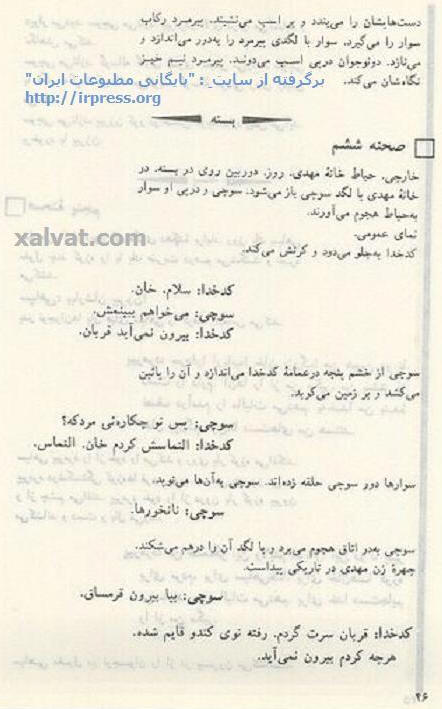 دست‌هایشان را می‌بندد و بر اسب می‌نشیند. پیرمرد رکاب
سوار را می‌گیرد. سوار با لگدی پیرمرد را به‌دور می‌اندازد و
می‌تازد. دونوجوان درپی اسب می‌دوند. پیرمرد نیم خیز
نگاه‌شان می‌کند.
برگرفته از سایت : "بایگانی مطبوعات ایران"
http://irpress.org
بسته
صحنه ششم
خارجی. حیاط خانهٔ مهدی. روز. دوربین روی در بسته. در
خانهٔ مهدی با لگد سوچی باز می‌شود. سوچی و درپی او سوار
به‌حیاط هجوم می‌آورند.
نمای عمومی.
xalvat.com
کدخدا به‌جلو می‌دود و کرنش می‌کند.
کدخدا: سلام. خان.
سوچی: می‌خواهم ببینمش.
کدخدا: بیرون نمی‌آید قربان.
سوچی از خشم پنجه درعمامهٔ کدخدا می‌اندازد و آن را پائین
می‌کشد و بر زمین می‌کوبد.
سوچی: پس تو چکاره‌ئی مردکه؟
کدخدا: التماسش کردم خان. التماس.
سوارها دور سوچی حلقه زده‌اند. سوچی به‌آن‌ها می‌توپد.
سوچی: نانخورها.
سوچی به‌در اتاق هجوم می‌برد و با لگد آن را درهم می‌شکند.
چهرهٔ زن مهدی در تاریکی پیداست.
سوچی: بیا بیرون قرمساق.
کدخدا: قربان سرت گردم. رفته توی کندو قایم شده.
هرچه کردم بیرون نمی‌آید.
۲۶